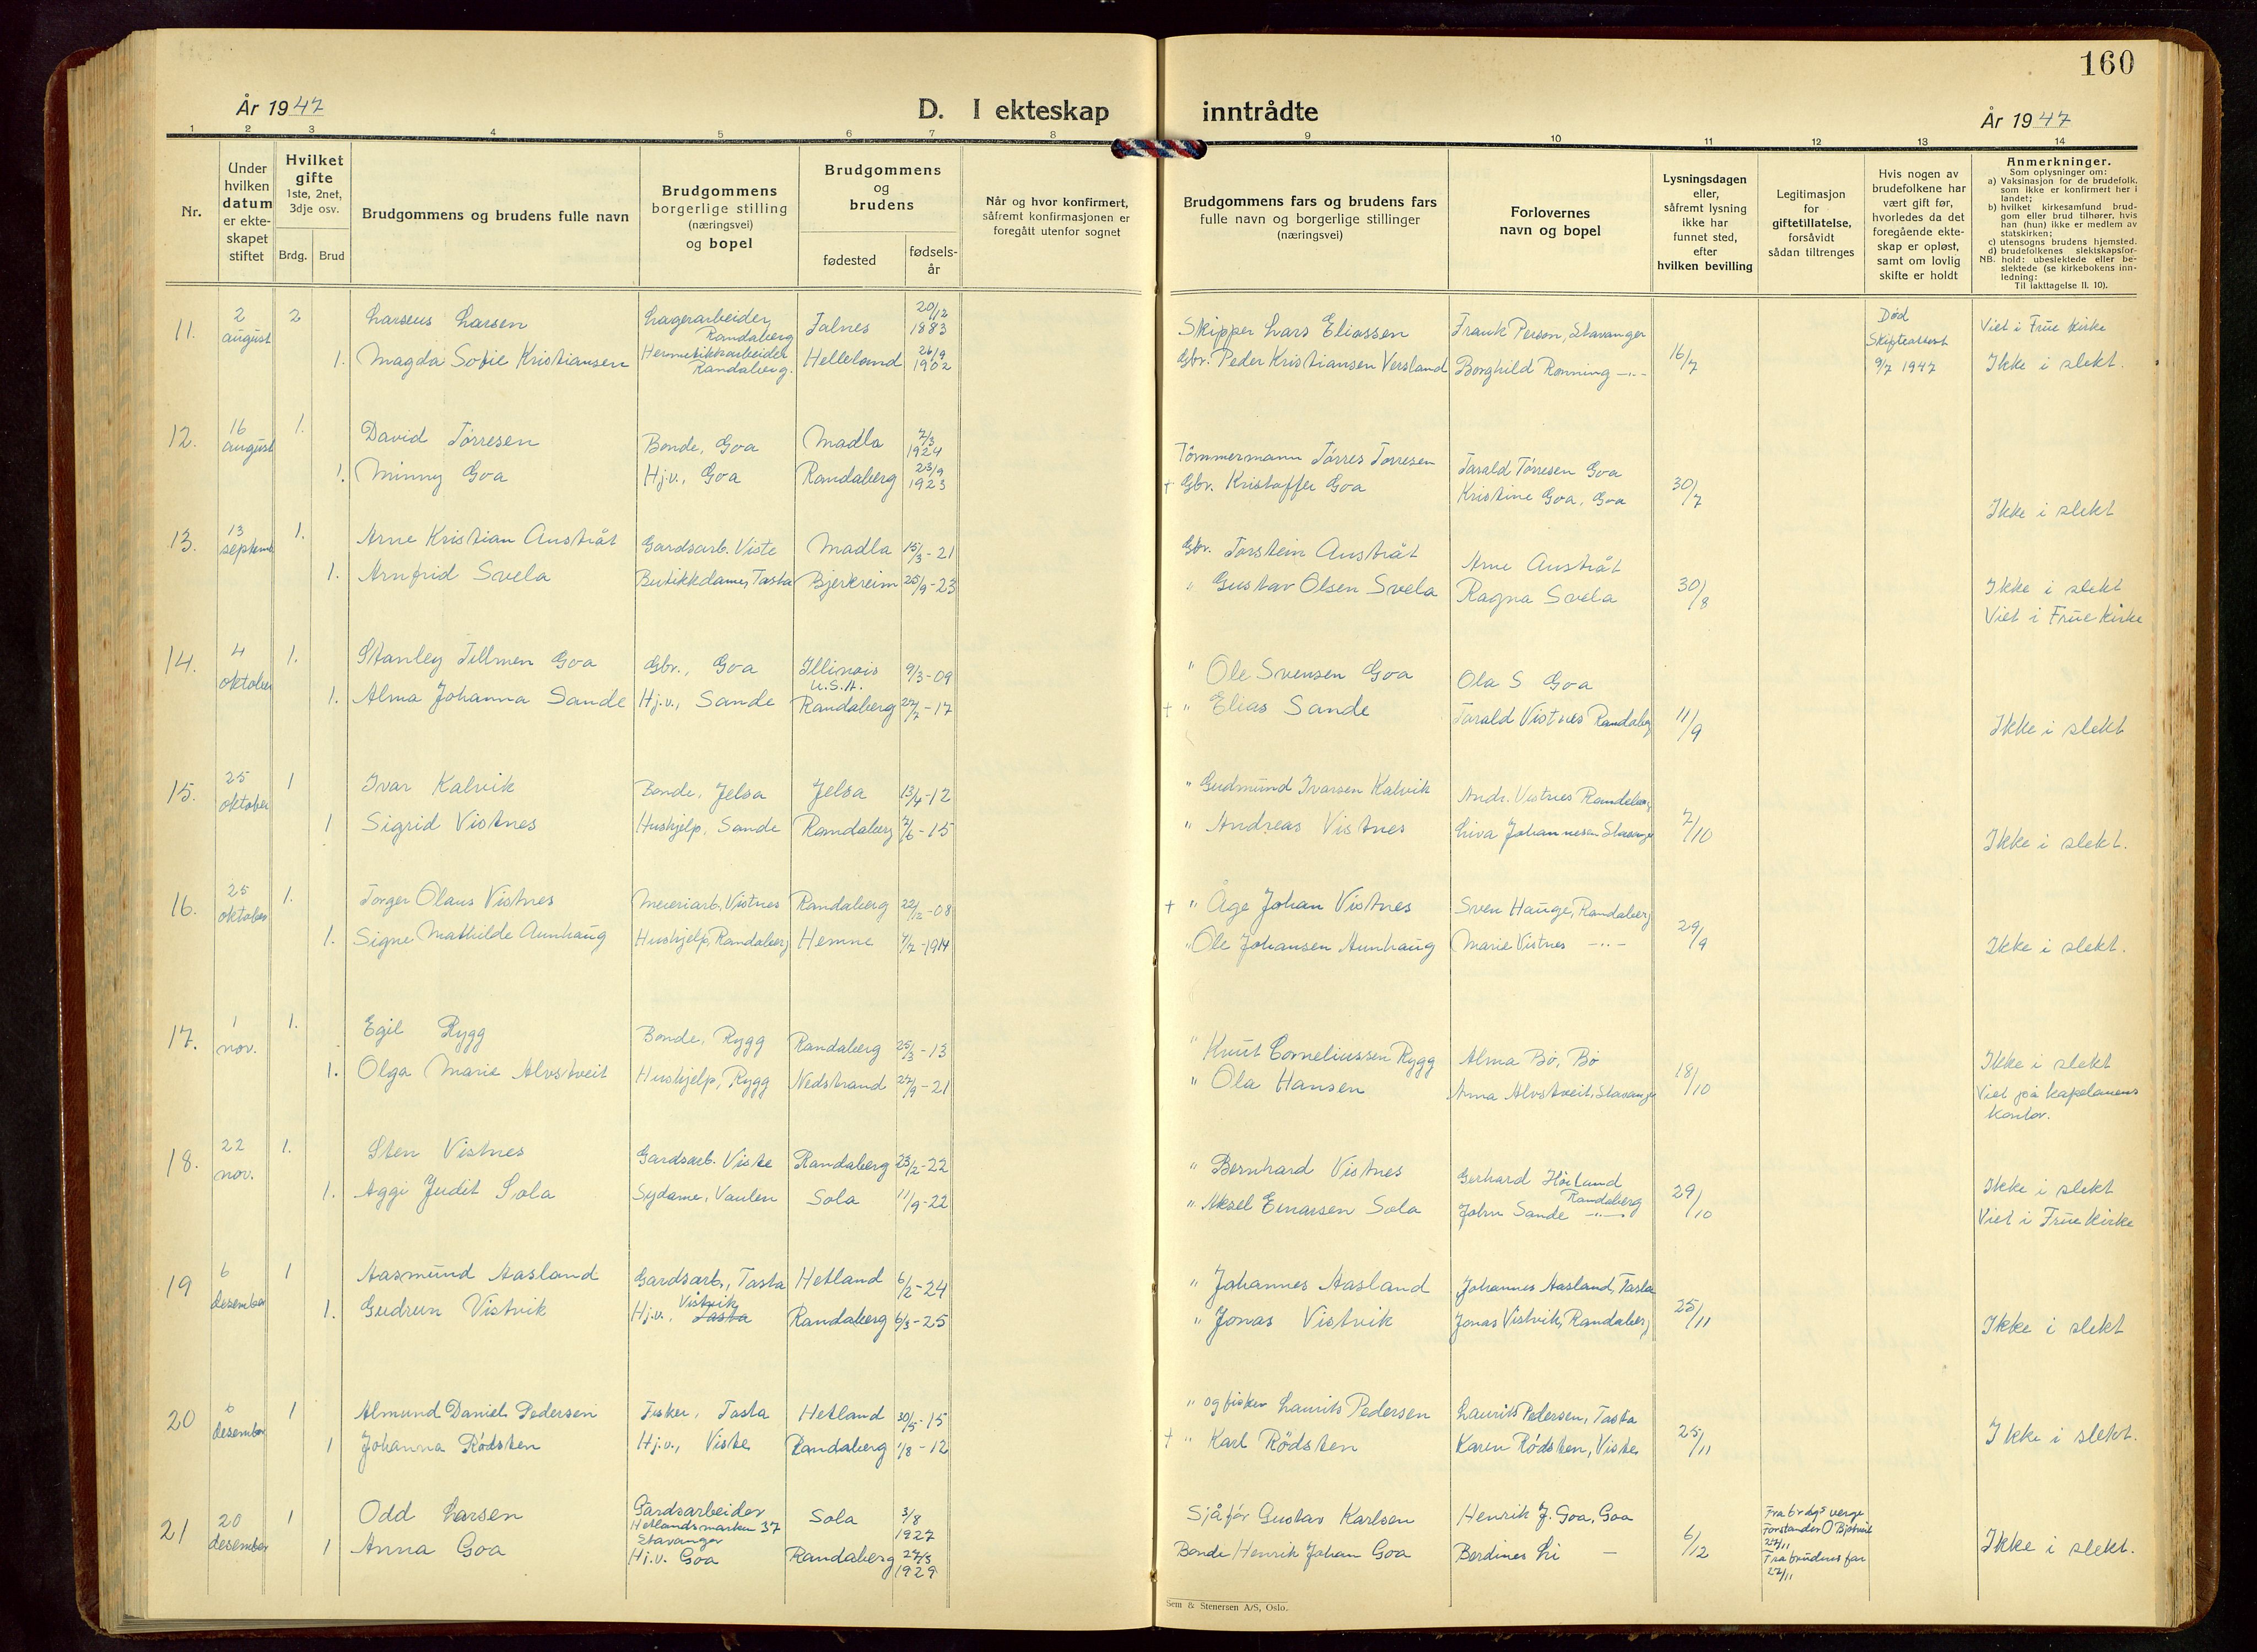 160
År 1947
D. I ekteskap inntrådte
År 1947
1 2 3 4 5 6 7 8 9 10 11 12 13 14
Nr.
Under hvilken datum er ekte-skapet stiftet
Hvilket gifte 1ste, 2net, 3dje osv.
Brdg. Brud
Brudgommens og brudens fulle navn
Brudgommens borgerlige stilling (næringsvei) og bopel
Brudgommens og brudens
fødested
fødsels-år
Når og hvor konfirmert, såfremt konfirmasjonen er foregått utenfor sognet
Brudgommens fars og brudens fars fulle navn og borgerlige stillinger (næringsvei)
Forlovernes navn og bopel
Lysningsdagen eller, såfremt lysning ikke har funnet sted, efter hvilken bevilling
Legitimasjon for giftetillatelse, forsåvidt sådan tiltrenges
Hvis nogen av brudefolkene har vært gift før, hvorledes da det foregående ekte-skap er opløst, samt om lovlig skifte er holdt
Anmerkninger.
Som oplysninger om:
a) Vaksinasjon for de brudefolk, som ikke er konfirmert her i landet;
b) hvilket kirkesamfund brud-gom eller brud tilhører, hvis han (hun) ikke er medlem av statskirken;
c) utensogns brudens hjemsted.
d) brudefolkenes slektskapsfor-hold: ubeslektede eller be-slektede (se kirkebokens inn-ledning:
NB.
Til iakttagelse II. 10).
11. 2 august 2 Larseus Larsen Lagerarbeider, Randaberg Jalnes 20/12 1883 Skipper Lars Eliassen Frank Person, Stavanger Død Skifteattest 9/7 1947 Viet i Frue Kirke
1. Magda Sofie Kristiansen Hermetikkarbeider Randaberg. Helleland 26/9 1902 Gbr. Peder Kristiansen Versland Borghild Rønning -"- 16/7 Ikke i slekt.
12. 16 august 1. David Tørresen Bonde, Goa Madla 7/3 1924 Tömmermann Tørres Tørresen Tarald Tørresen Goa
1. Minny Goa Hj.v., Goa Randaberg 23/9 1923 + Gbr. Kristoffer Goa Kristine Goa, Goa 30/7 Ikke i slekt
13. 13 septemb. 1. Arne Kristian Austråt Gardsarb. Viste Madla 15/3-21 Gbr. Torstein Austråt Arne Austråt
1. Arnfrid Svela Butikkdame, Tasta Bjerkreim 25/9-23 " Gustav Olsen Svela Ragna Svela 30/8 Ikke i slekt
Viet i Frue Kirke
14. 4 oktober 1. Stanley Tillmen Goa Gbr., Goa Illinois U.S.A. 9/3-09 " Ole Svensen Goa Ola S Goa
1. Alma Johanna Sande Hj.v., Sande Randaberg 27/7-17 + " Elias Sande Tarald Vistnes Randaberg 11/9 Ikke i slekt
15. 25 oktober 1 Ivar Kalvik Bonde, Jelsa Jelsa 13/4-12 " Gudmund Ivarsen Kalvik Andr. Vistnes Randaberg
1 Sigrid Vistnes Hushjelp, Sande Randaberg 7/6-15 " Andreas Vistnes Liva Johannesen Stavanger 7/10 Ikke i slekt.
16. 25 oktober 1. Torger Olaus Vistnes Meieriarb. Vistnes Randaberg 22/12-08 + " Åge Johan Vistnes Sven Hauge, Randaberg
1. Signe Mathilde Aunhaug Hushjelp, Randaberg Hemne 7/2-1914 " Ole Johansen Aunhaug Marie Vistnes -"- 29/9 Ikke i slekt.
17. 1 nov. 1. Egil Rygg Bonde, Rygg Randaberg 25/3-13 " Knut Corneliussen Rygg Alma Bø, Bø Ikke i slekt
1. Olga Marie Alvstveit Hushjelp, Rygg Nedstrand 27/9-21 " Ola Hansen Anna Alvstveit, Stavanger 18/10 Viet på kapelanens kontor.
18. 22 nov. 1. Sten Vistnes Gardsarb. Viste Randaberg 23/2-22 " Bernhard Vistnes Gerhard Höiland Randaberg Ikke i slekt
1. Aggi Judit Sola Sydame, Vaulen Sola 11/9-22 " Aksel Einarsen Sola John Sande -"- 29/10 Viet i Frue Kirke
19 6 desember 1 Aasmund Aasland Gardsarb., Tasta Hetland 6/2-24 " Johannes Aasland Johannes Aasland, Tasta
1. Gudrun Vistvik Hj.v. Vistvik Tasta Randaberg 6/3-25 " Jonas Vistvik Jonas Vistvik, Randaberg 25/11 Ikke i slekt
20 6 desember 1 Almund Daniel Pedersen Fisker, Tasta Hetland 30/5-15 " og fisker Laurits Pedersen Laurits Pedersen, Tasta
1 Johanna Rødsten Hj.v., Viste Randaberg 1/8-12 + " Karl Rödsten Karen Rödsten, Viste 25/11 Ikke i slekt.
21 20 desember 1 Odd Larsen Gardsarbeider Hetlandsmarken 37 Stavanger Sola 3/8 1927 Sjåfør Gustav Karlsen Henrik J. Goa, Goa Fra brdgs verge Forstander O 27/11
1 Anna Goa Hj.v. Goa Randaberg 27/3 1929 Bonde Henrik Johan Goa Berdines Li — 6/12 Fra brudens far 27/11 Ikke i slekt.
Sem & Stenersen A/S, Oslo.